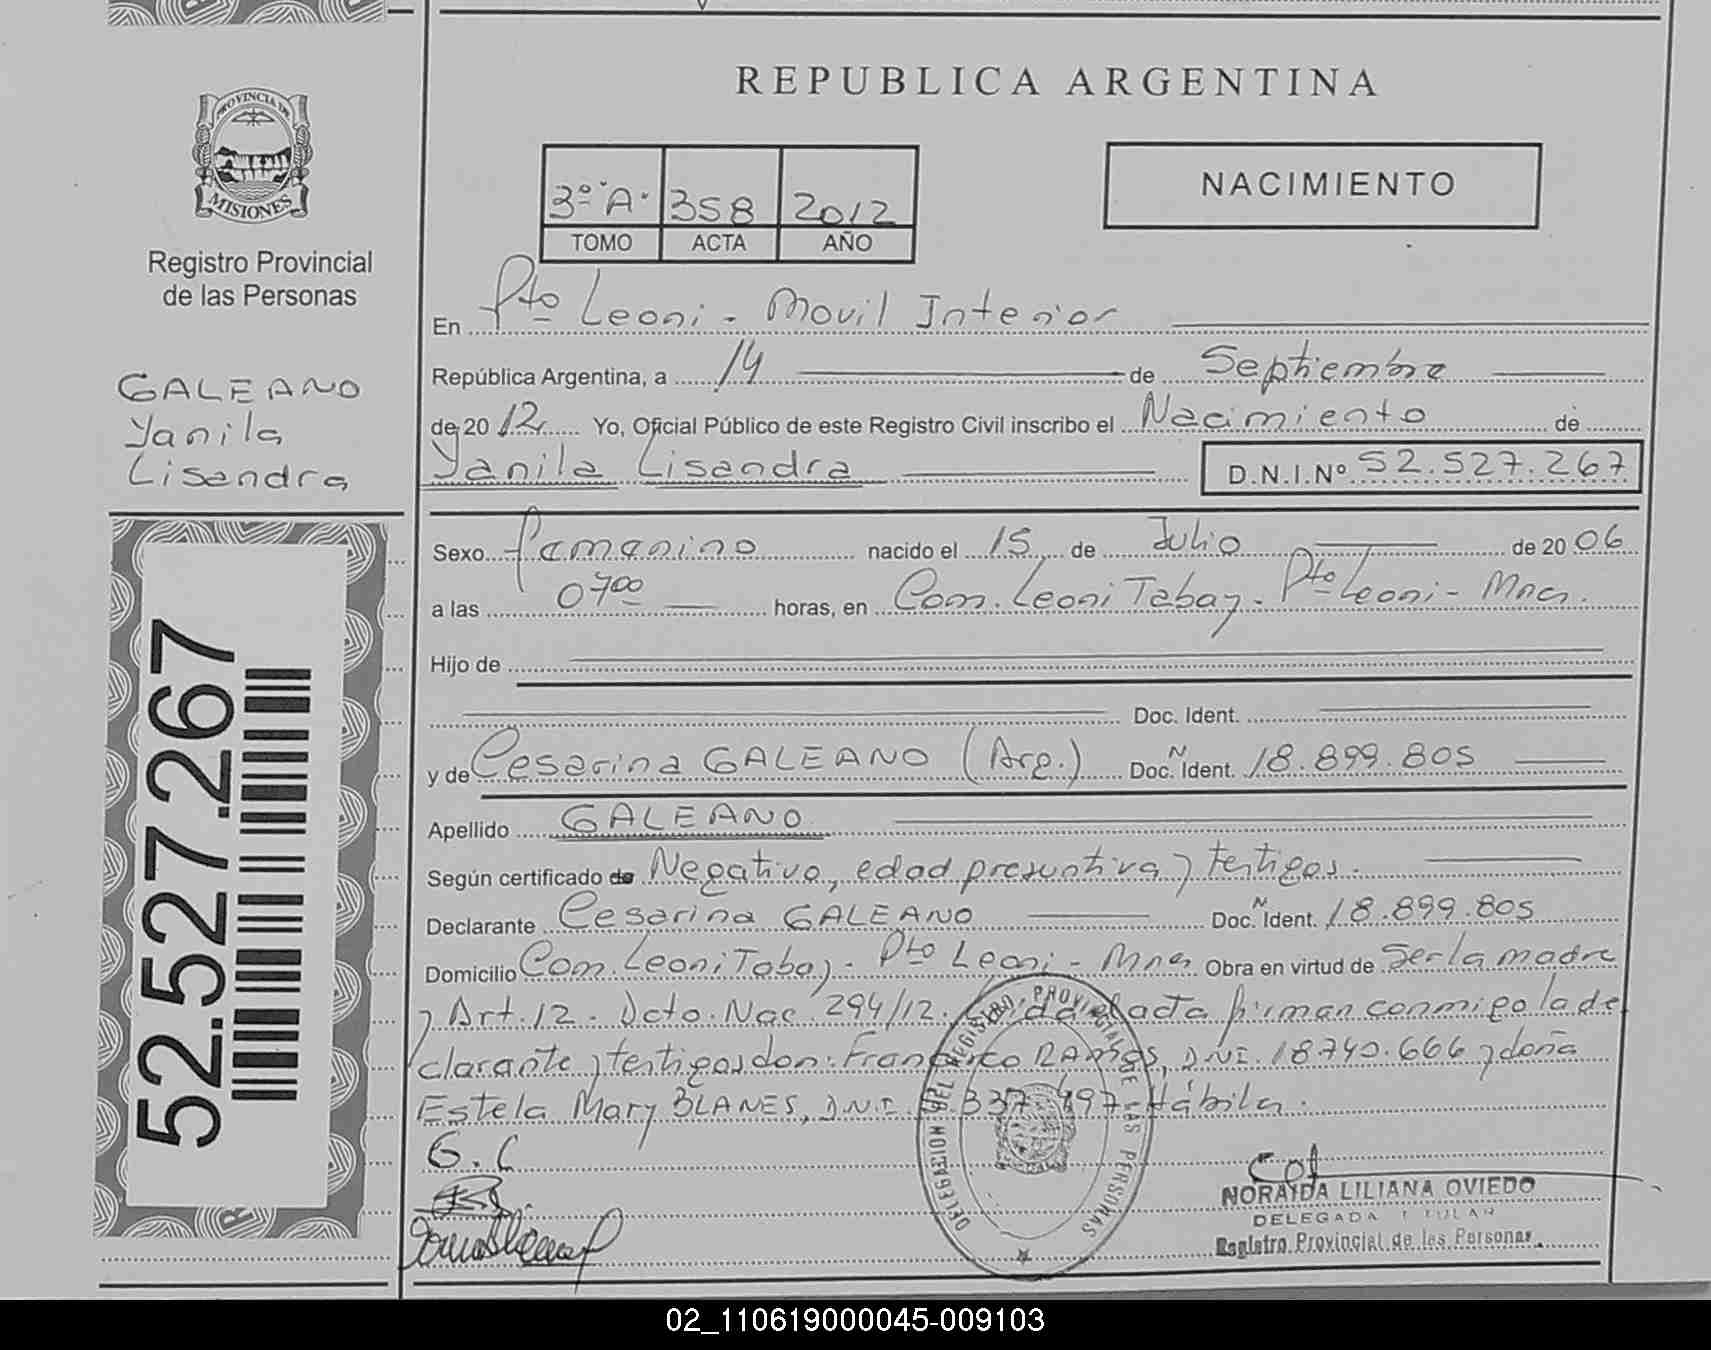 REPUBLICA ARGENTINA
PROVINCIA DE
MISIONES
Registro Provincial
de las Personas
GALEANO
Yanila
Lisandra
52.527.267
3º "A" 358 2012
TOMO ACTA AÑO
NACIMIENTO
En Pto Leoni - Movil Interior
República Argentina, a 14 de Septiembre
de 2012 Yo, Oficial Público de este Registro Civil inscribo el Nacimiento de
Yanila Lisandra D.N.I.Nº 52.527.267
Sexo femenino nacido el 15 de Julio de 2006
a las 0700 horas, en Com. Leoni Tabay - Pto Leoni - Mnes.
Hijo de
Doc. Ident.
y de Cesarina GALEANO (Arg.) Doc. Ñ Ident. 18.899.805
Apellido GALEANO
Según certificado de Negativo, edad presuntiva y testigos.
Declarante Cesarina GALEANO Doc. Ñ Ident. 18.899.805
Domicilio Com. Leoni Tabay - Pto Leoni - Mnes Obra en virtud de Ser la madre
y Art. 12 - Dcto. Nac 294/12. Leída el acta firman conmigo la de
clarante y testigos don: Francisco RAMOS, D.N.I. 18.740.666 y doña
Estela Mary BLANES, D.N.I. 337.497 - Hábiles.
G. C
DELEGACION DEL REGISTRO PROVINCIAL DE LAS PERSONAS
NORAIDA LILIANA OVIEDO
DELEGADA TITULAR
Registro Provincial de las Personas
02_110619000045-009103